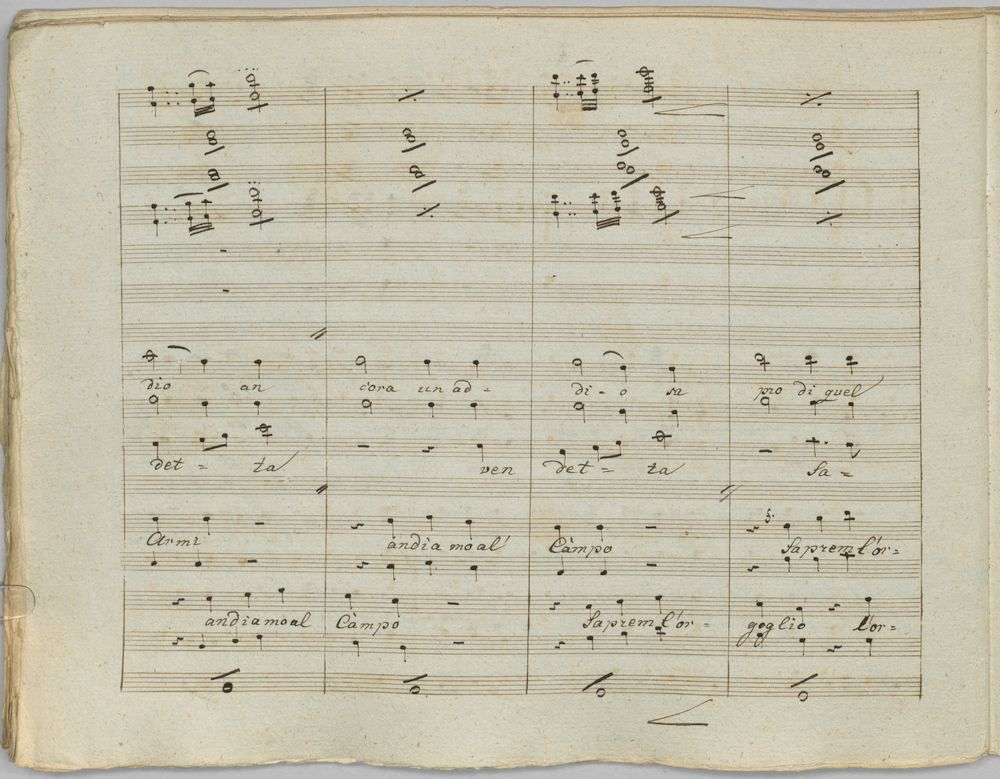 dio an cora un ad= di-o sa pro di quel
det= ta ven det= ta Sa=
Armi andiamo al Càmpo Saprem l'or=
andiamo al Càmpo Saprem l'or= goglio l'or=